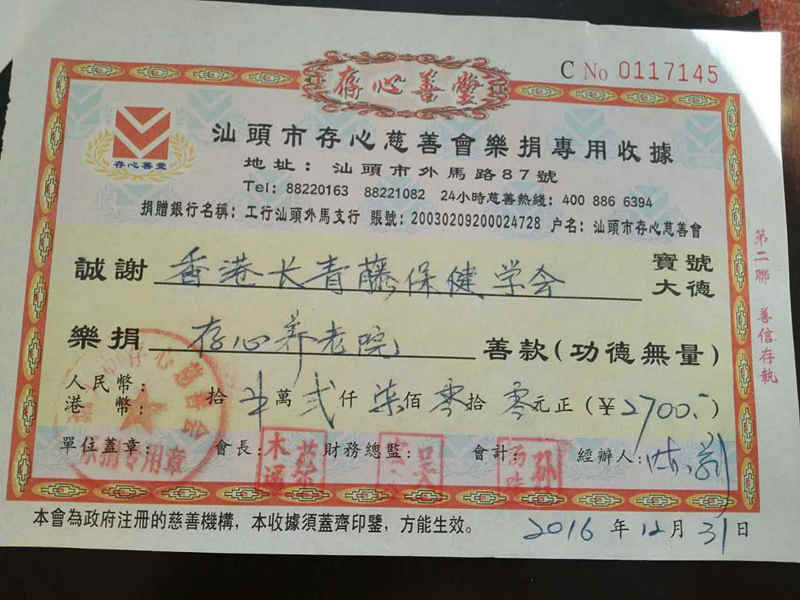 存心善堂
C No 0117145
存心善堂
汕頭市存心慈善會樂捐專用收據
地址：汕頭市外馬路87號
Tel: 88220163 88221082 24小時慈善熱綫: 400 886 6394
捐贈銀行名稱：工行汕頭外馬支行 賬號：2003020920002４728 户名：汕頭市存心慈善會
誠謝 香港长青藤保健学会 寶號
大德
樂捐 存心养老院 善款(功德無量)
人民幣：
港 幣：
拾 萬 弍仟 柒佰 零拾 零元正 (￥2700.-)
單位蓋章： 會長： 財務總監： 會計： 經辦人：
本會為政府注册的慈善機構，本收據須蓋齊印鑒，方能生效。
2016 年 12 月 31 日
第二聯 善信存執